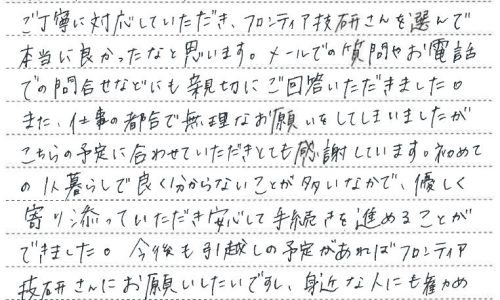 ご丁寧に対応していただき、フロンティア技研さんを選んで
本当に良かったなと思います。メールでの質問やお電話
での問合せなどにも親切にご回答いただきました。
また、仕事の都合で無理なお願いをしてしまいましたが
こちらの予定に合わせていただきとても感謝しています。初めて
の1人暮らしで良く分からないことが多いなかで、優しく
寄り添っていただき安心して手続きを進めることが
できました。今後も引越しの予定があればフロンティア
技研さんにお願いしたいですし、身近な人にも薦め